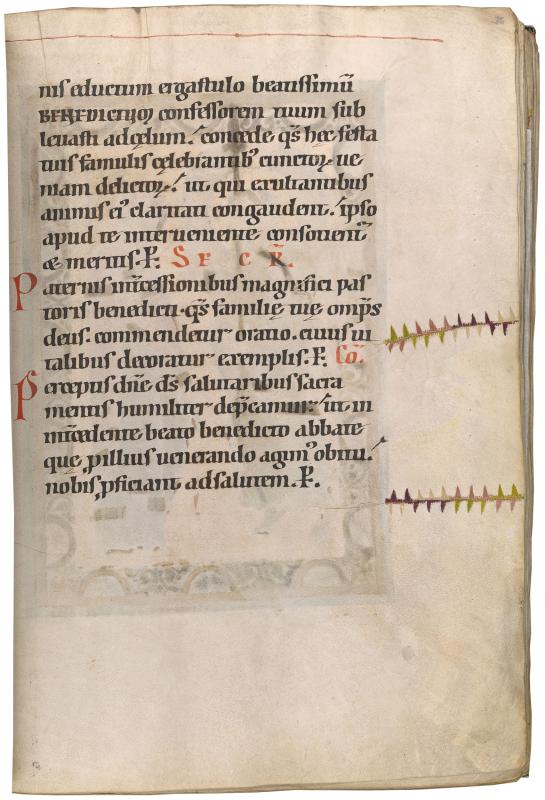 nis eductum ergastulo beatissimū
BENEDICTUM confessorem tuum sub
leuasti ad cęlum. concede qs̄ hęc festa
tuis famulis cęlebrantib; cunctoꝝ ue
niam delictoꝝ. ut qui exultantibus
animis ei' claritati congaudent. ipso
apud te interueniente consocient᷑
& meritis. P. SECR̄.
Paternis int̄cessionibus magnifici pas
toris benedicti. qs̄ familię tuę omp̄s
deus. commendetur oratio. cuius ui
talibus decoratur exemplis. P. Cō.
Perceptis dn̄e ds̄ salutaribus sacra
mentis humiliter dep̄camur. ut in
int̄cedente beato benedicto abbate
que ꝓ illius uenerando agim' obitu.
nobis ꝓficiant ad salutem. P.